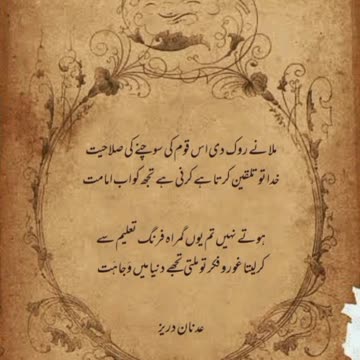 ملا نے روک دی اس قوم کی سوچنے کی صلاحیت
خدا تو تلقین کرتا ہے کرنی ہے تجھ کو اب امامت
ہوتے نہیں تم یوں گمراہ فرنگ تعلیم سے
کر لیتا غور و فکر تو ملتی تجھے دنیا میں وَجاہَت
عدنان دریز